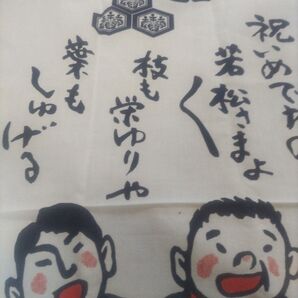 祝いめでたの
若松さまよ
〱
枝も
栄ゆりや
葉も
しゅげる